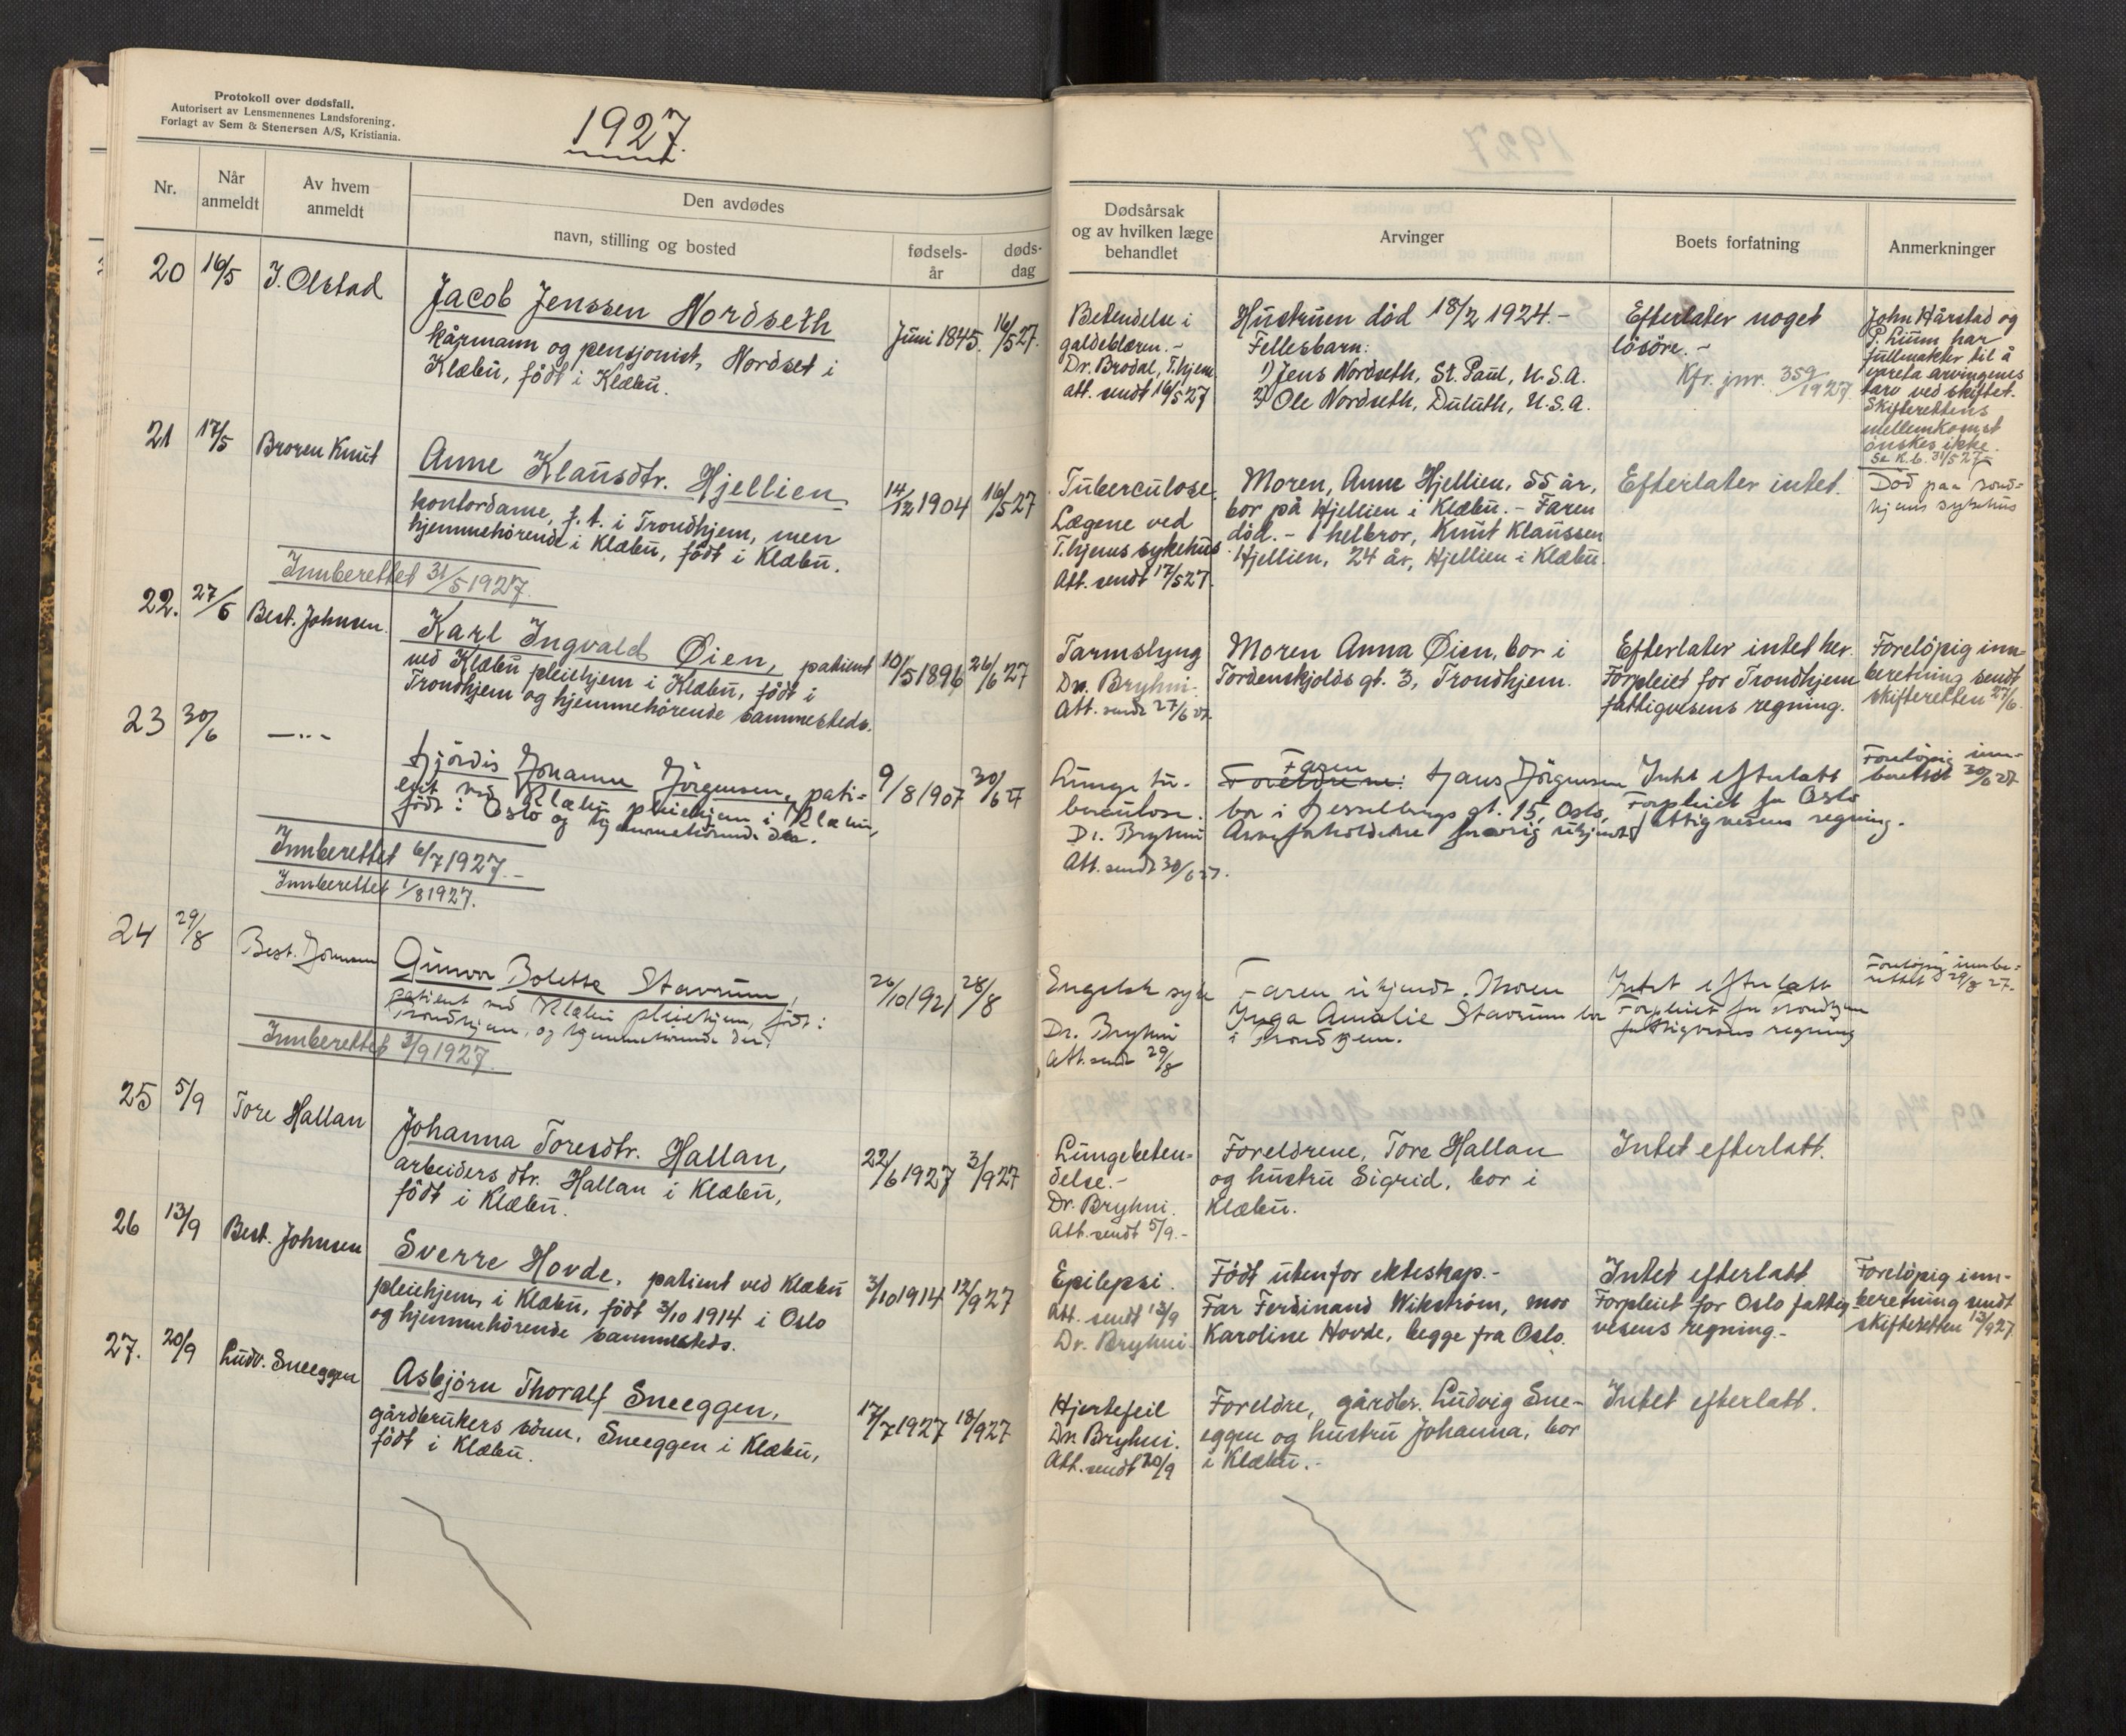 Protokoll over dødsfall.
Autorisert av Lensmennenes Landsforening.
Forlagt av Sem & Stenersen A/S, Kristiania.
1927.
Nr.
Når anmeldt
Av hvem anmeldt
Den avdødes
navn, stilling og bosted
fødsels-år
døds-dag
Dødsårsak
og av hvilken læge
behandlet
Arvinger
Boets forfatning
Anmerkninger
20 16/5 J. Olstad
Jacob Jenssen Nordseth
kårmann og pensjonist, Nordset i
Klæbu, født i Klæbu.
Juni 1845. 16/5 27.
Betendelse i
galdeblæren.-
Dr. Brodal, T.hjem
Att. sendt 16/5 27
Hustruen død 18/2 1924.-
Fellesbarn:
1) Jens Nordseth, St. Paul, U.S.A.
2) Ole Nordseth, Duluth, U.S.A.
Efterlater noget
løsøre.-
Kfr. jnr. 359/1927.
John Hårstad og
P. Lium har
fullmakter til å
vareta arvingenes
tarv ved skiftet.
Skifterettens
mellemkomst
ønskes ikke.
Se K.b. 31/5 27
21 17/5 Broren Knut
Anne Klausdtr. Hjellien
kontordame, f.t. i Trondhjem, men
hjemmehørende i Klæbu, født i Klæbu.
14/12 1904 16/5 27
Tuberculose.
Lægene ved
T.hjems sykehus.
Att. sendt 17/5 27.
Moren, Anne Hjellien, 55 år,
bor på Hjellien i Klæbu. - Faren
død. - 1 helbror, Knut Klaussen
Hjellien, 24 år, Hjellien i Klæbu.
Efterlater intet.
Død paa Trond-
hjems sykehus
Innberettet 31/5 1927.
22. 27/6 Best. Johnsen.
Karl Ingvald Øien, patient
ved Klæbu pleiehjem i Klæbu, født i
Trondhjem og hjemmehørende sammesteds.
10/5 1896 26/6 27
Tarmslyng
Dr. Bryhni.
Att. sendt 27/6 27.
Moren Anna Øien, bor i
Tordenskjolds gt. 3, Trondhjem.
Efterlater intet her.
Forpleiet for Trondhjem
fattigvesens regning.
Foreløpig inn-
beretning sendt
skifteretten 27/6.
23 30/6 —"—
Hjørdis Johanne Jörgensen, pati-
ent ved Klæbu pleiehjem i Klæbu,
født i Oslo og hjemmehørende der.
9/8 1907 30/6 27
Lunge tu-
berculose.
Dr. Bryhni
Att. sendt 30/6 27.
Faren
Foreldrene: Hans Jörgensen
bor i Hesselbergs gt. 15, Oslo,
Arveforholdene forøvrig ukjendt
Intet efterlatt
Forpleiet for Oslo
fattigvesens regning.
Foreløpig inn-
berettet 30/6 27
Innberettet 6/7 1927.-
Innberettet 1/8 1927.
24 29/8 Best. Johnsen
Gunvor Bolette Stavrum,
patient ved Klæbu pleiehjem, født i
Trondhjem, og hjemmehørende der.
26/10 1921 28/8
Engelsk syke
Dr. Bryhni
Att. sendt 29/8
Faren ukjendt. Moren
Inga Amalie Stavrum bor
i Trondhjem.
Intet efterlatt
Forpleiet for Trondhjem
fattigvesens regning
Foreløpig innbe-
rettet 29/8 27.
Innberettet 3/9 1927.
25 5/9 Tore Hallan
Johanna Toresdtr. Hallan,
arbeiders dtr. Hallan i Klæbu,
født i Klæbu.
22/6 1927 3/9 27
Lungebeten-
delse.-
Dr. Bryhni.
Att. sendt 5/9.-
Foreldrene, Tore Hallan
og hustru Sigrid, bor i
Klæbu.
Intet efterlatt.
26 13/9 Best. Johnsen
Sverre Hovde, patient ved Klæbu
pleiehjem, i Klæbu, født 3/10 1914 i Oslo
og hjemmehørende sammesteds.
3/10 1914 12/9 27
Epilepsi.
Att. sendt 13/9
Dr. Bryhni
Født utenfor ekteskap.-
Far Ferdinand Wikstrøm, mor
Karoline Hovde, begge fra Oslo.
Intet efterlatt
Forpleiet for Oslo fattig-
vesens regning.-
Foreløpig inn-
beretning sendt
skifteretten 13/9 27
27. 20/9 Ludv. Sneeggen
Asbjørn Thoralf Sneeggen,
gårdbrukers sønn, Sneeggen i Klæbu,
født i Klæbu.
17/7 1927 18/9 27
Hjertefeil
Dr. Bryhni.
Att. sendt 20/9
Foreldre, gårdbr. Ludvig Sne-
eggen og hustru Johanna, bor
i Klæbu.-
Intet efterlatt.